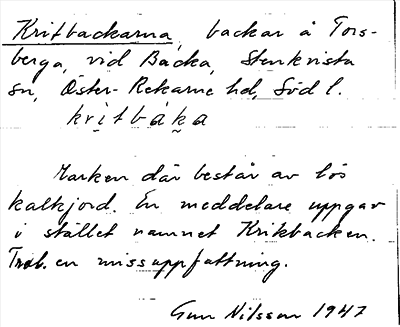 Kritbackarna, backar å Tors-
berga, vid Backa, Stenkvista
sn, Öster-Rekarne hd, Söd l.
kritbáka
Marken där består av lös
kalkjord. En meddelare uppgav
i stället namnet Krikbacken.
Trol. en missuppfattning.
Gun Nilsson 1947